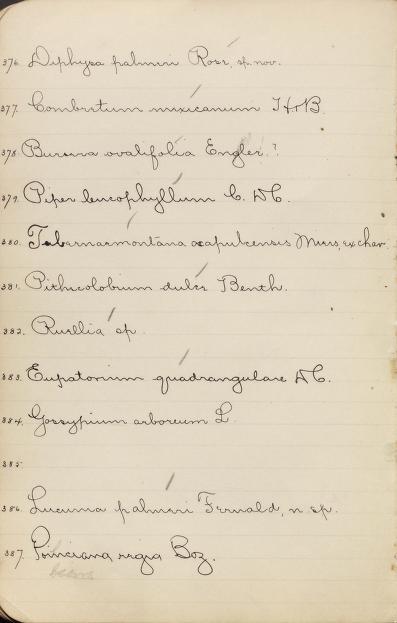 376. Diphysa palmeri Rose, sp. nov.
377. Combretum mexicanum H & B.
378 Bursera ovalifolia Engler. ?
379. Piper leucophyllum C. DC.
380. Tabernaemontana acapulcensis Miers, ex char.
381. Pithecolobium dulce Benth.
382. Ruellia sp.
383. Eupatorium quadrangulare DC.
384. Gossypium arboreum L
385.
386. Lucuma palmeri Fernald, n. sp.
387. Poinciana regia Boj.